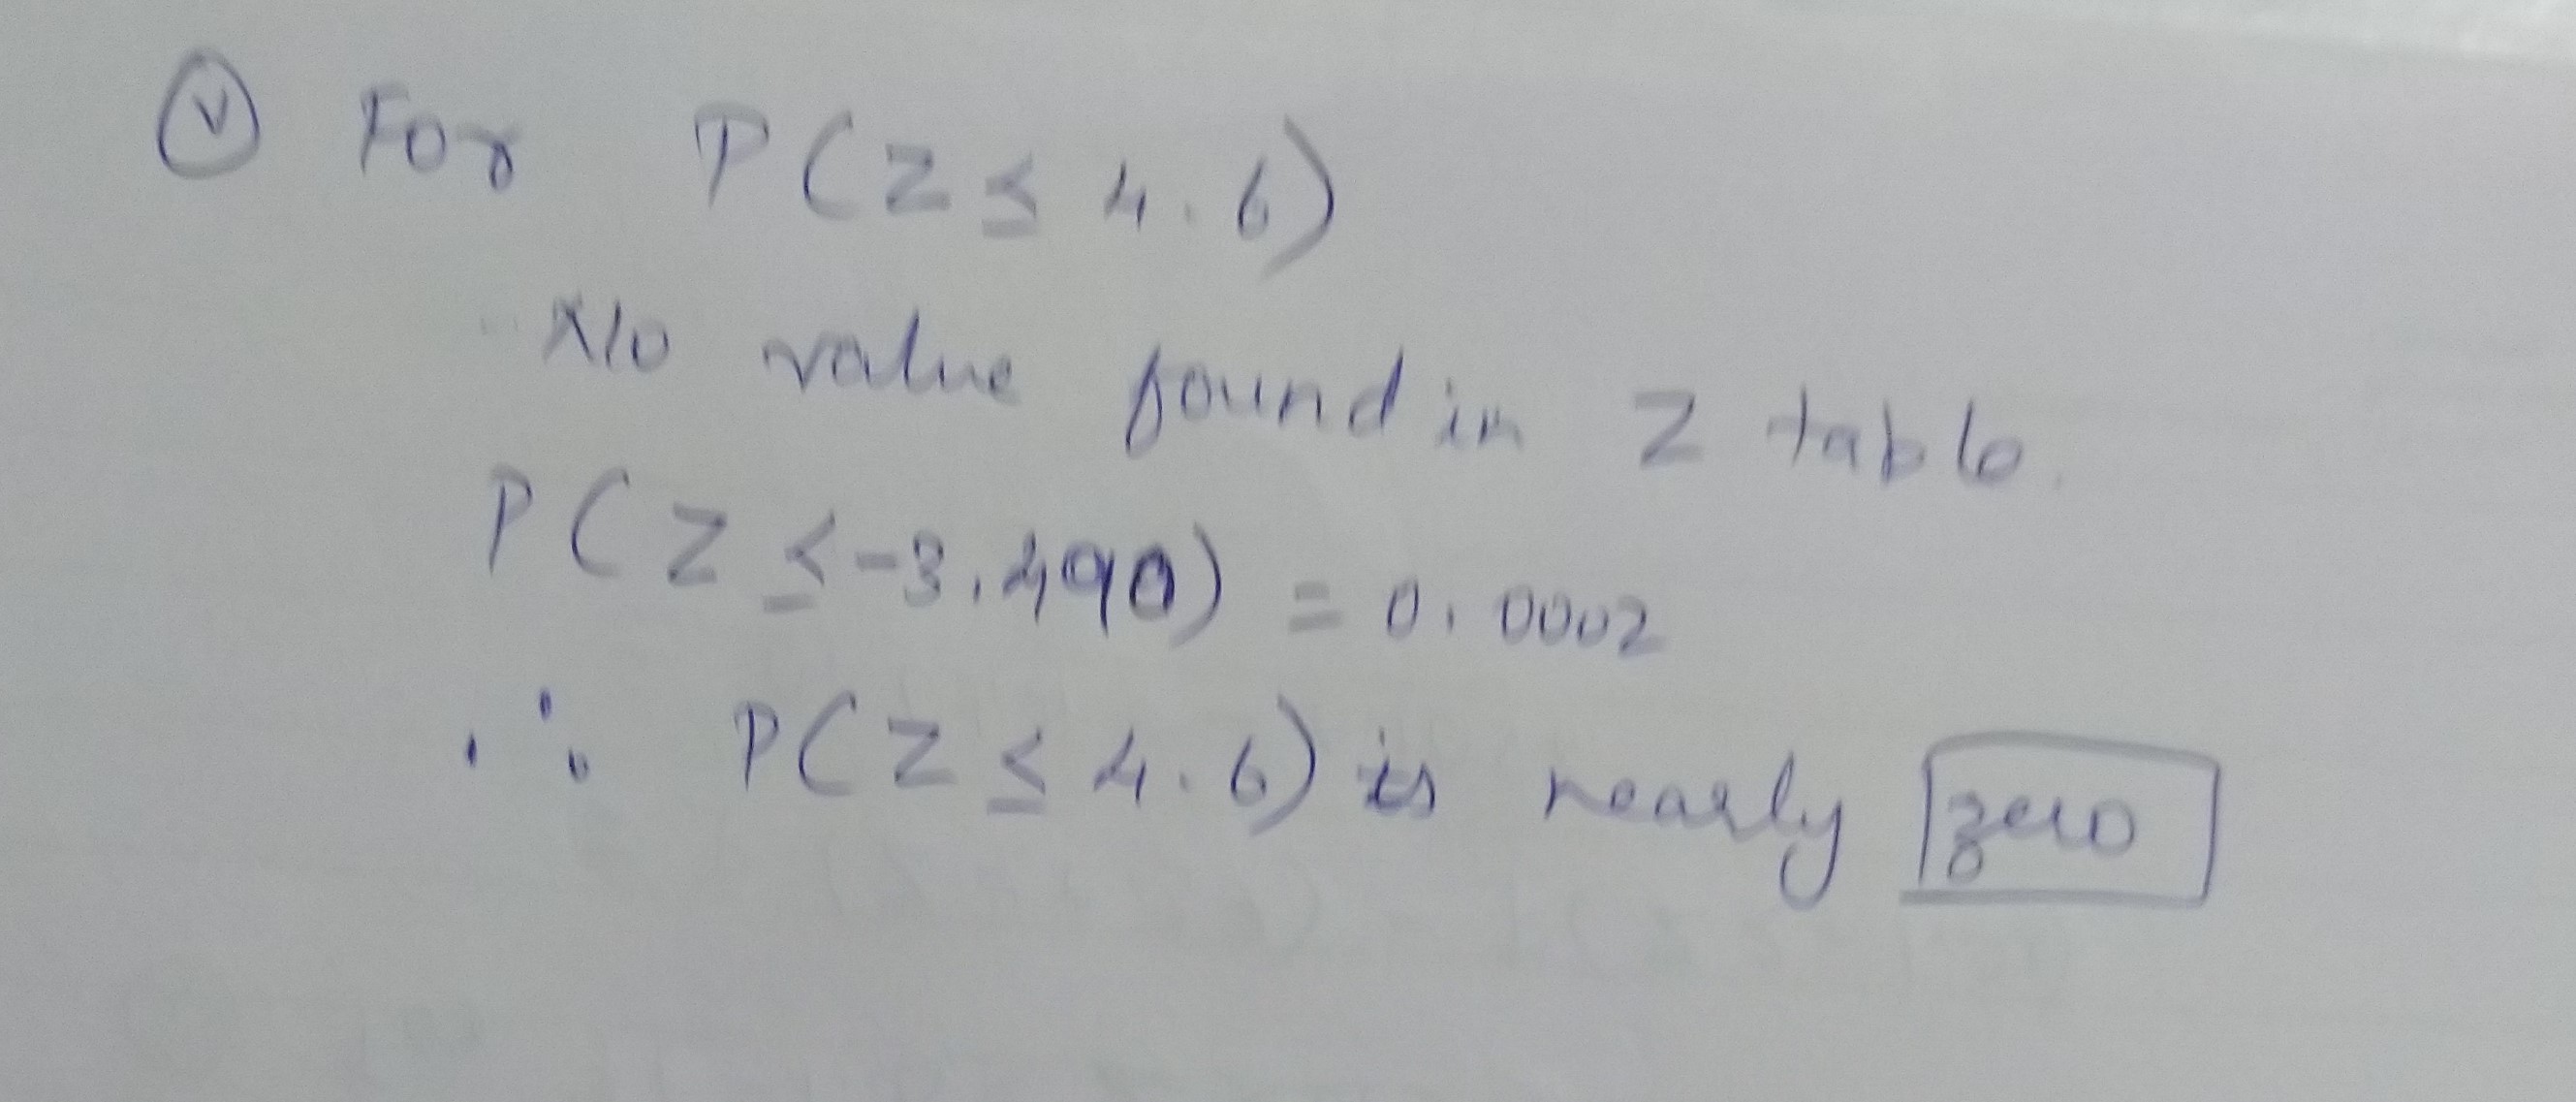 (V) For P(Z ≤ 4.6)
No value found in Z table.
P(Z ≤ -3.490) = 0.0002
∴ P(Z ≤ 4.6) is nearly zero